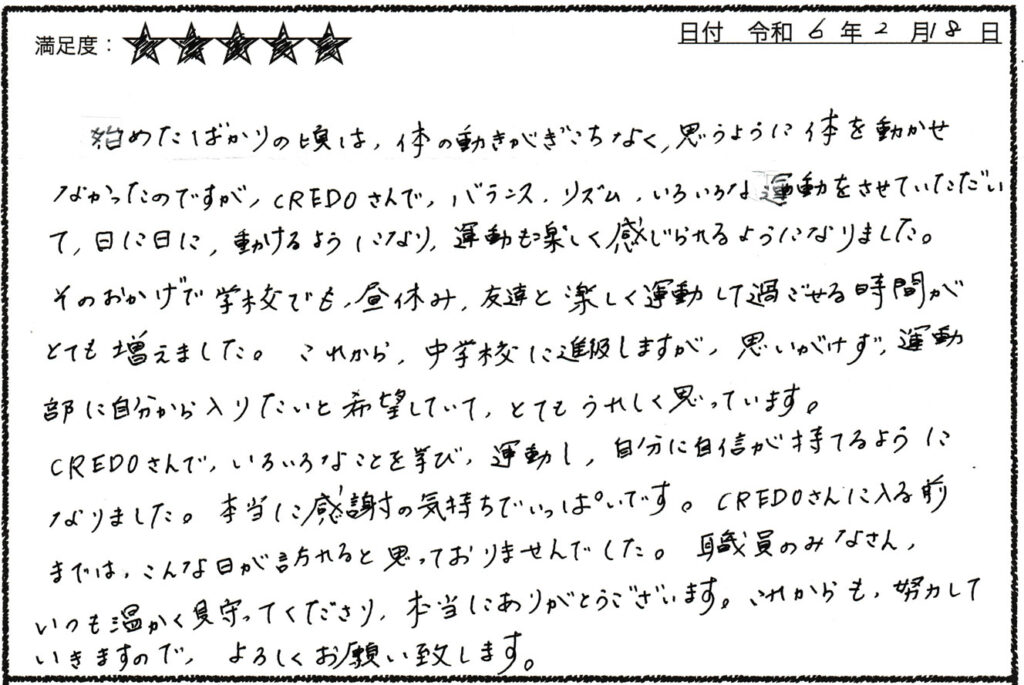 満足度：★★★★★
日付 令和 6 年 2 月 18 日
始めたばかりの頃は、体の動きがぎこちなく、思うように体を動かせ
なかったのですが、CREDOさんで、バランス、リズム、いろいろな運動をさせていただい
て、日に日に、動けるようになり、運動も楽しく感じられるようになりました。
そのおかげで学校でも、昼休み、友達と楽しく運動して過ごせる時間が
とても増えました。これから、中学校に進級しますが、思いがけず、運動
部に自分から入りたいと希望していて、とてもうれしく思っています。
CREDOさんで、いろいろなことを学び、運動し、自分に自信が持てるように
なりました。本当に感謝の気持ちでいっぱいです。CREDOさんに入る前
までは、こんな日が訪れると思っておりませんでした。職員のみなさん、
いつも温かく見守ってくださり、本当にありがとうございます。これからも、努力して
いきますので、よろしくお願い致します。